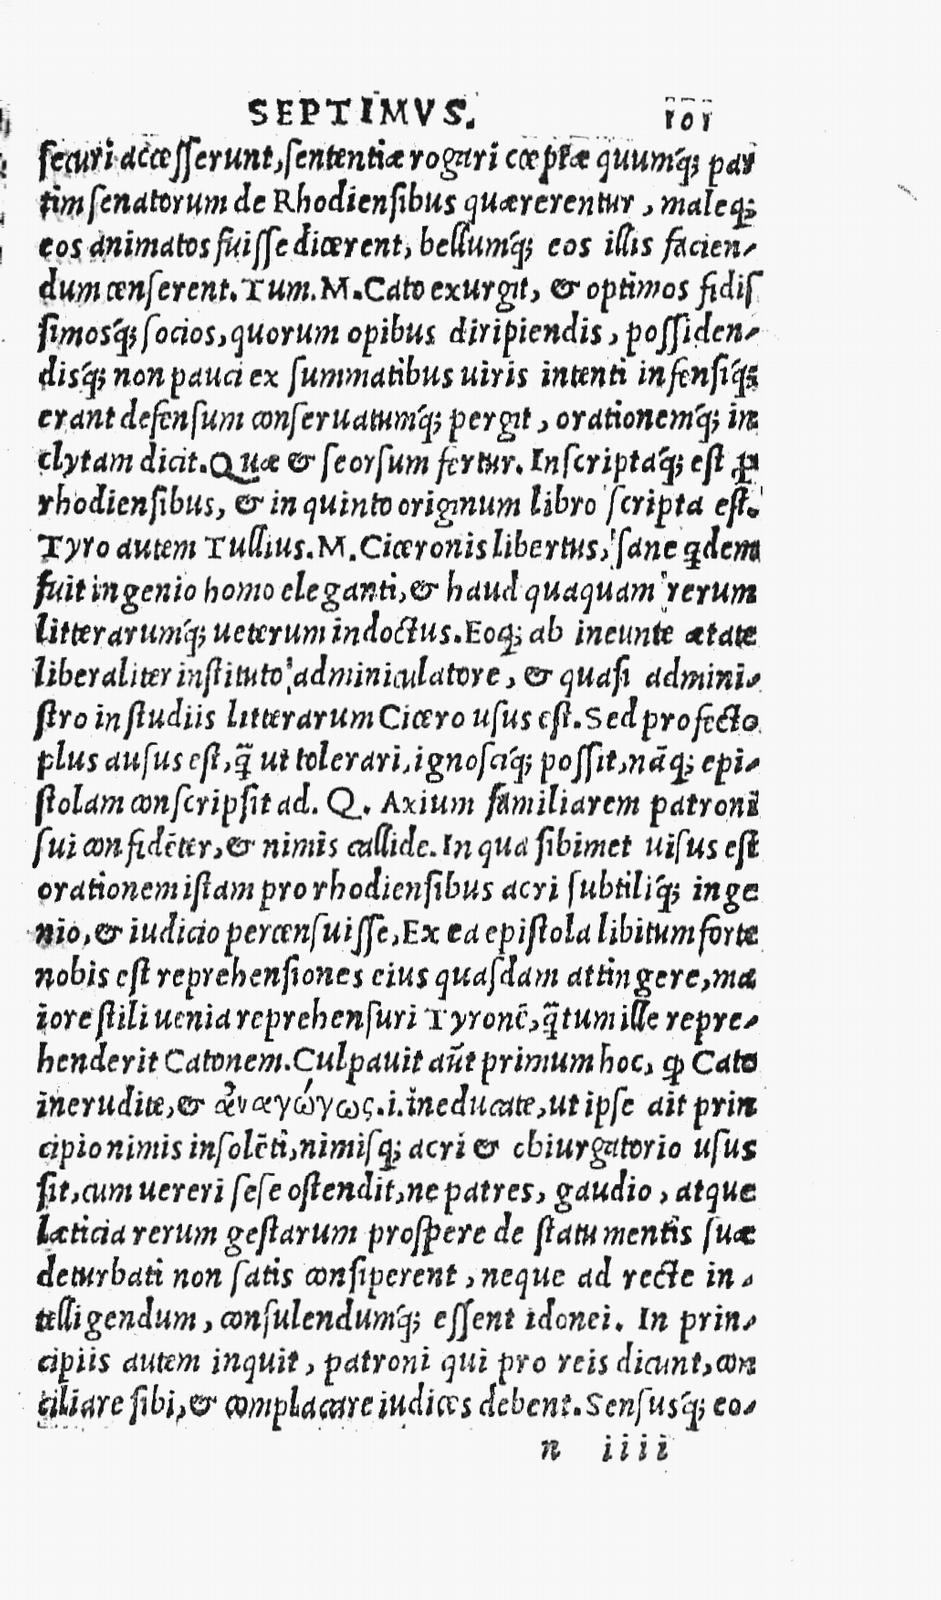 SEPTIMVS. 101
securi accesserunt, sententiæ rogari cœptæ quumq́; par
tim senatorum de Rhodiensibus quærerentur, maleq;
eos animatos fuisse dicerent, bellumq́; eos illis facien-
dum censerent. Tum. M. Cato exurgit, & optimos fidis
simosq́; socios, quorum opibus diripiendis, possiden-
disq́; non pauci ex summatibus uiris intenti infensiq́;
erant defensum conseruatumq́; pergit, orationemq́; in
clytam dicit. Quæ & seorsum fertur. Inscriptaq́; est ꝓ
rhodiensibus, & in quinto originum libro scripta est.
Tyro autem Tullius. M. Ciceronis libertus, sane qdem
fuit ingenio homo eleganti, & haud quaquam rerum
litterarumq́; ueterum indoctus. Eoq; ab ineunte ætate
liberaliter instituto adminiculatore, & quasi admini-
stro in studiis litterarum Cicero usus est. Sed profecto
plus ausus est, q̃ ut tolerari, ignosciq́; possit, nãq; epi-
stolam conscripsit ad. Q. Axium familiarem patroni
sui confidẽter, & nimis callide. In qua sibimet uisus est
orationem istam pro rhodiensibus acri subtiliq́; inge
nio, & iudicio percensuisse, Ex ea epistola libitum forte
nobis est reprehensiones eius quasdam attingere, ma
iore stili uenia reprehensuri Tyronẽ, q̃tum ille repre-
henderit Catonem. Culpauit aũt primum hoc, ꝙ Cato
inerudite, & ἀναγώγως. i. ineducate, ut ipse ait prin
cipio nimis insolẽti, nimisq; acri & obiurgatorio usus
sit, cum uereri sese ostendit, ne patres, gaudio, atque
læticia rerum gestarum prospere de statu mentis suæ
deturbati non satis consiperent, neque ad recte in-
telligendum, consulendumq́; essent idonei. In prin-
cipiis autem inquit, patroni qui pro reis dicunt, con
ciliare sibi, & complacare iudices debent. Sensusq́; eo-
n iiii